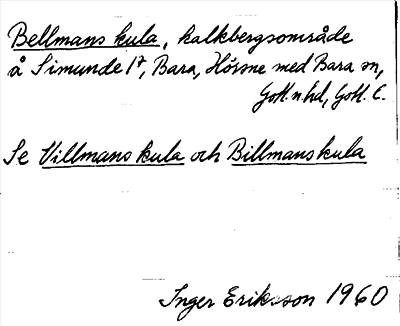 Bellmans kula, kalkbergsområde
å Simunde 1⁷, Bara, Hörsne med Bara sn,
Gotl. n. hd, Gotl. l.
Se Villmans kula och Billmans kula
Inger Eriksson 1960